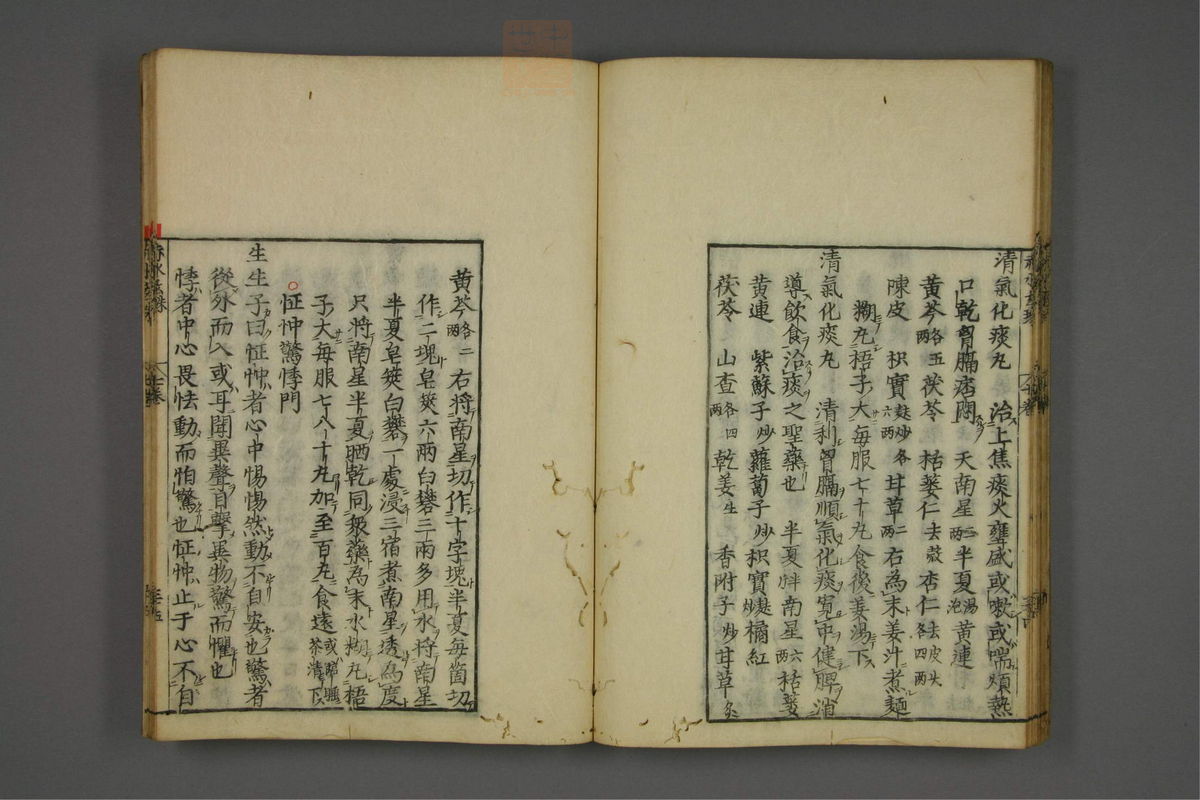 清氣化痰丸 治上焦痰火壅盛或嗽或喘煩熱
口乾胷膈痞悶 天南星三兩半夏湯泡黃連
黃芩各五兩茯苓 枯蔞仁去殼杏仁去皮尖各四兩
陳皮 枳實麩炒各六兩甘草二兩右為末姜汁煮麵
糊丸梧子大每服七十丸食後姜湯下
清氣化痰丸 清利胷膈順氣化痰寬中健脾消
導飲食治痰之聖藥也 半夏 南星六兩枯蔞
黃連 紫蘇子炒蘿蔔子炒枳實麩炒橘紅
茯苓 山查各四兩乾姜生香附子炒甘草炙
黃芩各二兩右將南星切作十字塊半夏每箇切
作二塊皂莢六兩白礬三兩多用水將南星
半夏皂莢白礬一處浸三宿煮南星透為度
只將南星半夏晒乾同衆藥為末水糊丸梧
子大每服七八十丸加至百丸食遠或臨臥茶清下
怔忡驚悸門
生生子曰怔忡者心中惕惕然動不自安也驚者
從外而入或耳聞異聲目擊異物驚而懼也
悸者中心畏怯動而怕驚也怔忡止于心不自